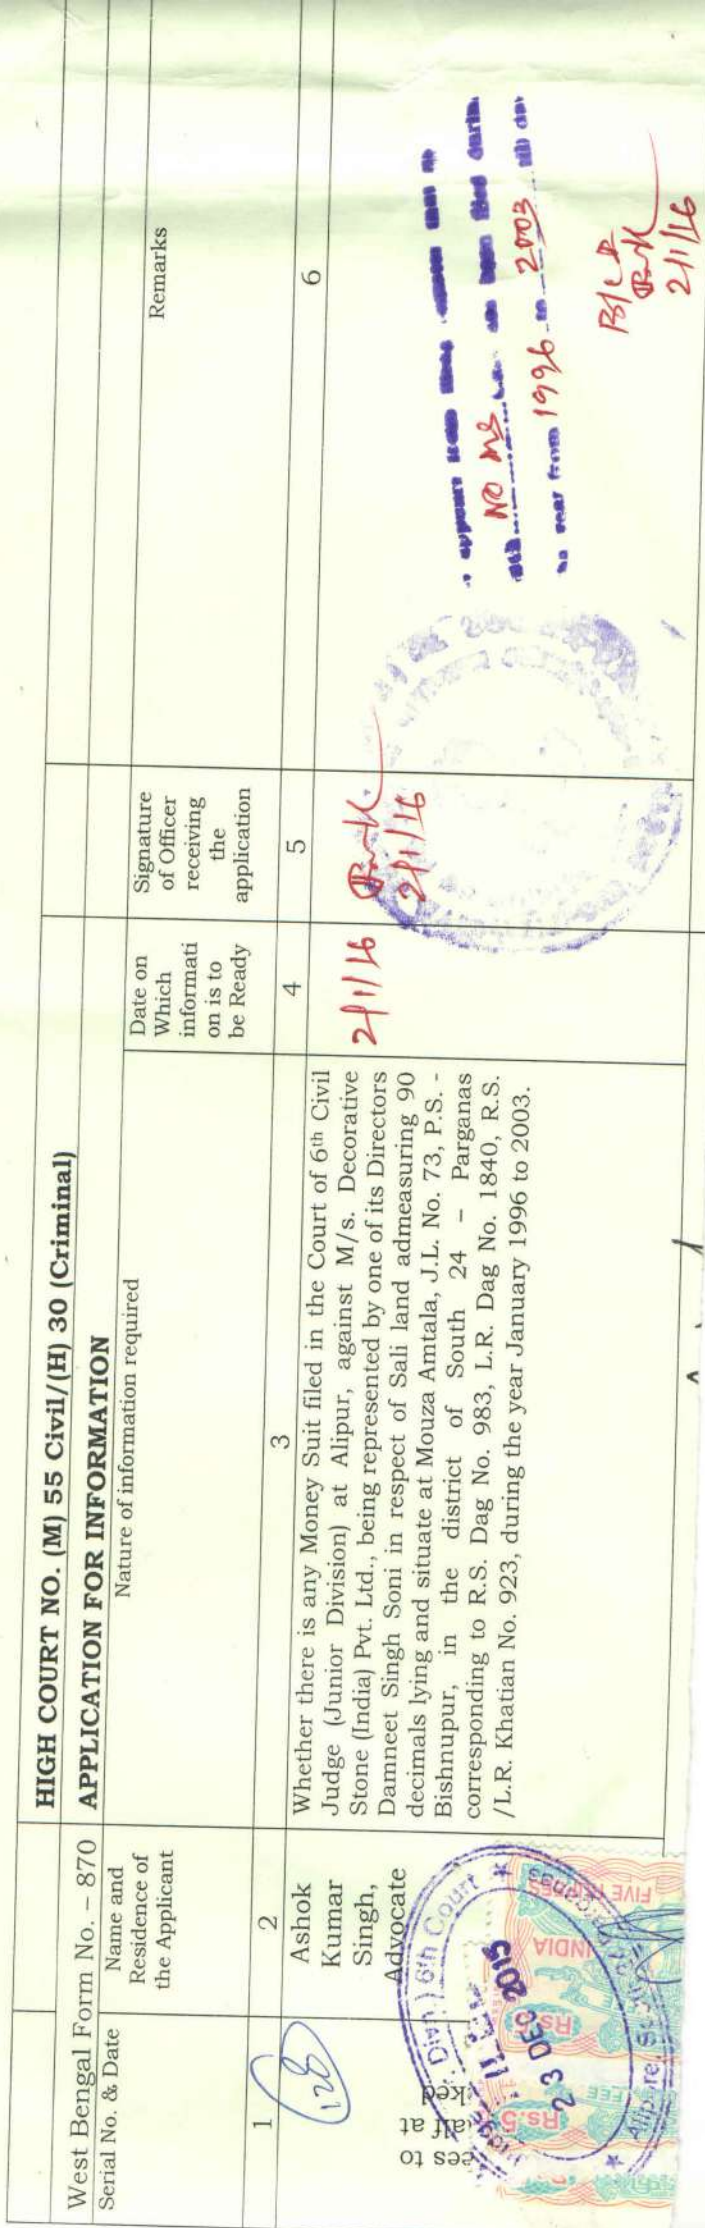 HIGH COURT NO. (M) 55 Civil/(H) 30 (Criminal)
West Bengal Form No. – 870
APPLICATION FOR INFORMATION
Serial No. & Date
Name and
Residence of
the Applicant
Nature of information required
Date on
Which
informati
on is to
be Ready
Signature
of Officer
receiving
the
application
Remarks
1
2
3
4
5
6
128
Ashok
Kumar
Singh,
Advocate
Whether there is any Money Suit filed in the Court of 6th Civil
Judge (Junior Division) at Alipur, against M/s. Decorative
Stone (India) Pvt. Ltd., being represented by one of its Directors
Damneet Singh Soni in respect of Sali land admeasuring 90
decimals lying and situate at Mouza Amtala, J.L. No. 73, P.S. -
Bishnupur, in the district of South 24 – Parganas
corresponding to R.S. Dag No. 983, L.R. Dag No. 1840, R.S.
/L.R. Khatian No. 923, during the year January 1996 to 2003.
2/1/16
2/1/16
appears
NO MS been filed
year from 1996 to 2003
2/1/16
ees to
alf at
ked
Divn.) 6th Court
23 DEC 2015
Rs.5
Rs.5
INDIA
FIVE RUPEES
FEE